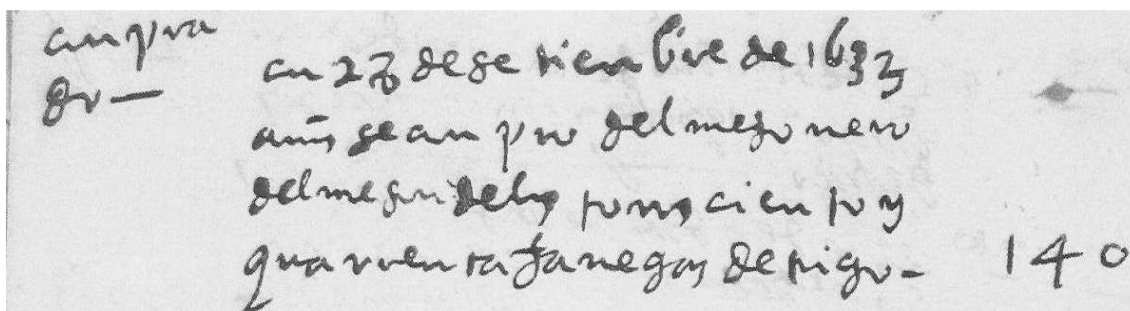 conpra
do —
en 23 de setienbre de 1633
años se conpro del mesonero
del meson de los toros ciento y
quarenta fanegas de trigo — 140